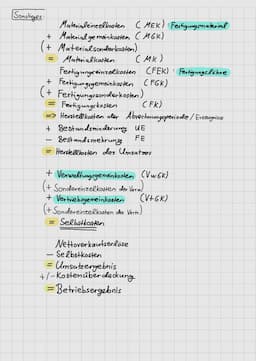 Sonstiges:
Materialeinzelkosten (MEK) Fertigungsmaterial
+ Materialgemeinkosten (MGK)
(+ Materialsonderkosten)
= Materialkosten (MK)
Fertigungseinzelkosten (FEK) Fertigungslöhne
+ Fertigungsgemeinkosten (FGK)
(+ Fertigungssonderkosten)
= Fertigungskosten (FK)
=> Herstellkosten der Abrechnungsperiode / Erzeugnisse
+ Bestandsminderung UE
- Bestandsmehrung FE
= Herstellkosten des Umsatzes
+ Verwaltungsgemeinkosten (VwGK)
(+ Sondereinzelkosten der Verw)
+ Vertriebsgemeinkosten (VtGK)
(+ Sondereinzelkosten des Vertr)
= Selbstkosten
Nettoverkaufserlöse
- Selbstkosten
= Umsatzergebnis
+/- Kostenüberdeckung
= Betriebsergebnis